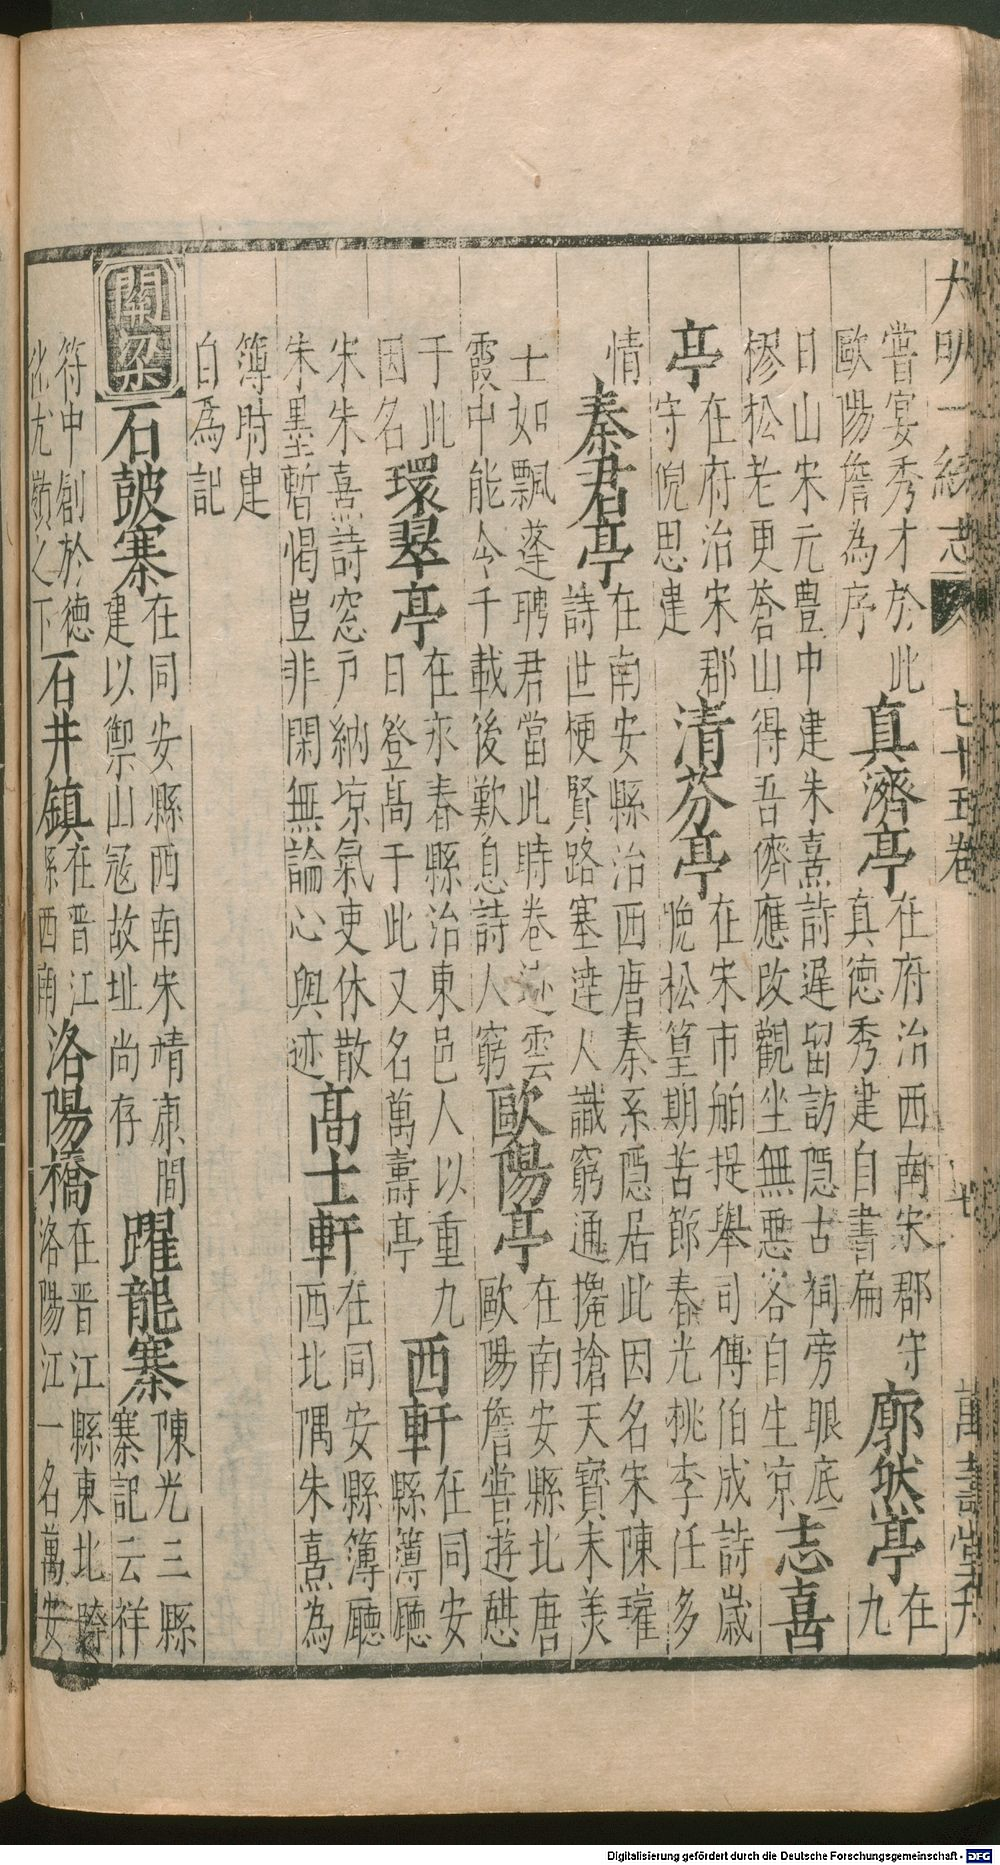 大明一統志 七十五卷 七 萬壽堂刊
嘗宴秀才於此歐陽詹為序 真濟亭 在府治西南宋郡守真德秀建自書扁 廓然亭 在九
日山宋元豊中建朱熹詩遲留訪隠古祠旁眼底樛松老更蒼山得吾儕應改觀坐無惡客自生凉 志喜
亭 在府治宋郡守倪思建 清芬亭 在宋市舶提舉司傅伯成詩歲晚松篁期苦節春光桃李任多
情 秦君亭 在南安縣治西唐秦系隠居此因名宋陳瓘詩世梗賢路塞達人識窮通攙搶天寶末美
士如飄蓬聘君當此時卷迹雲霞中能令千載後歎息詩人窮 歐陽亭 在南安縣北唐歐陽詹嘗遊憇
于此因名 環翠亭 在永春縣治東邑人以重九日登髙于此又名萬壽亭 西軒 在同安縣簿廳
宋朱熹詩窓戸納凉氣吏休散朱墨暫偈豈非閑無論心與迹 髙士軒 在同安縣簿廳西北隅朱熹為
簿時建自為記
關梁 石皷寨 在同安縣西南宋靖康間建以禦山冦故址尚存 躍龍寨 陳光三縣寨記云祥
符中創於德化尤嶺之下 石井鎮 在晉江縣西南 洛陽橋 在晉江縣東北跨洛陽江一名萬安
Digitalisierung gefördert durch die Deutsche Forschungsgemeinschaft - DFG